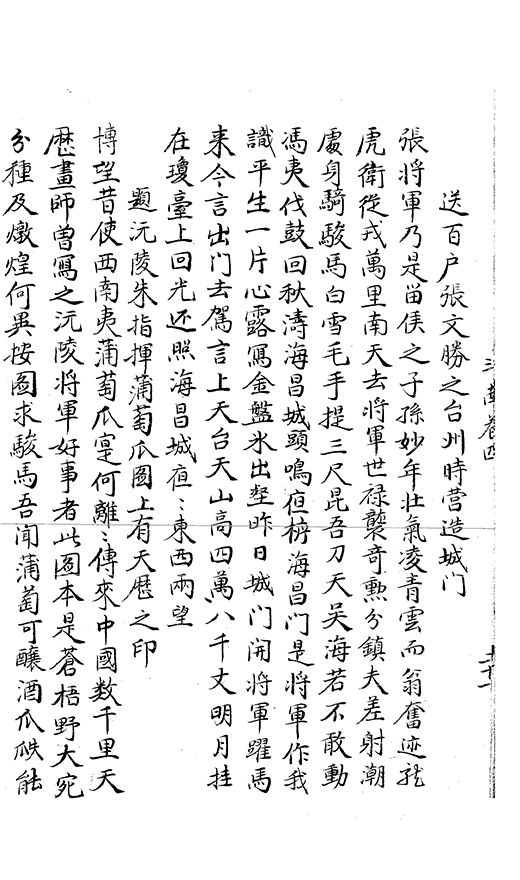 送百户張文勝之台州時营造城门
張將軍乃是畄侯之子孫妙年壮氣凌青雲而翁奮迹龍
虎衛從戎萬里南天去將軍世禄襲竒勲分鎮夫差射潮
處身騎駿馬白雪毛手提三尺昆吾刀天吴海若不敢動
馮夷伐鼓回秋濤海昌城頭鳴夜柝海昌门是將軍作我
識平生一片心露冩金盤氷出壑昨日城门開將軍躍馬
来今言出门去駕言上天台天山高四萬八千丈明月挂
在瓊臺上回光还照海昌城夜〻東西兩望
題沅陵朱指揮蒲萄瓜圖上有天歷之印
博望昔使西南夷蒲萄瓜寔何離〻傳來中國数千里天
歷畫師曽冩之沅陵將軍好事者此圖本是蒼梧野大宛
分種及燉煌何異按圖求駿馬吾聞蒲萄可釀酒瓜瓞能